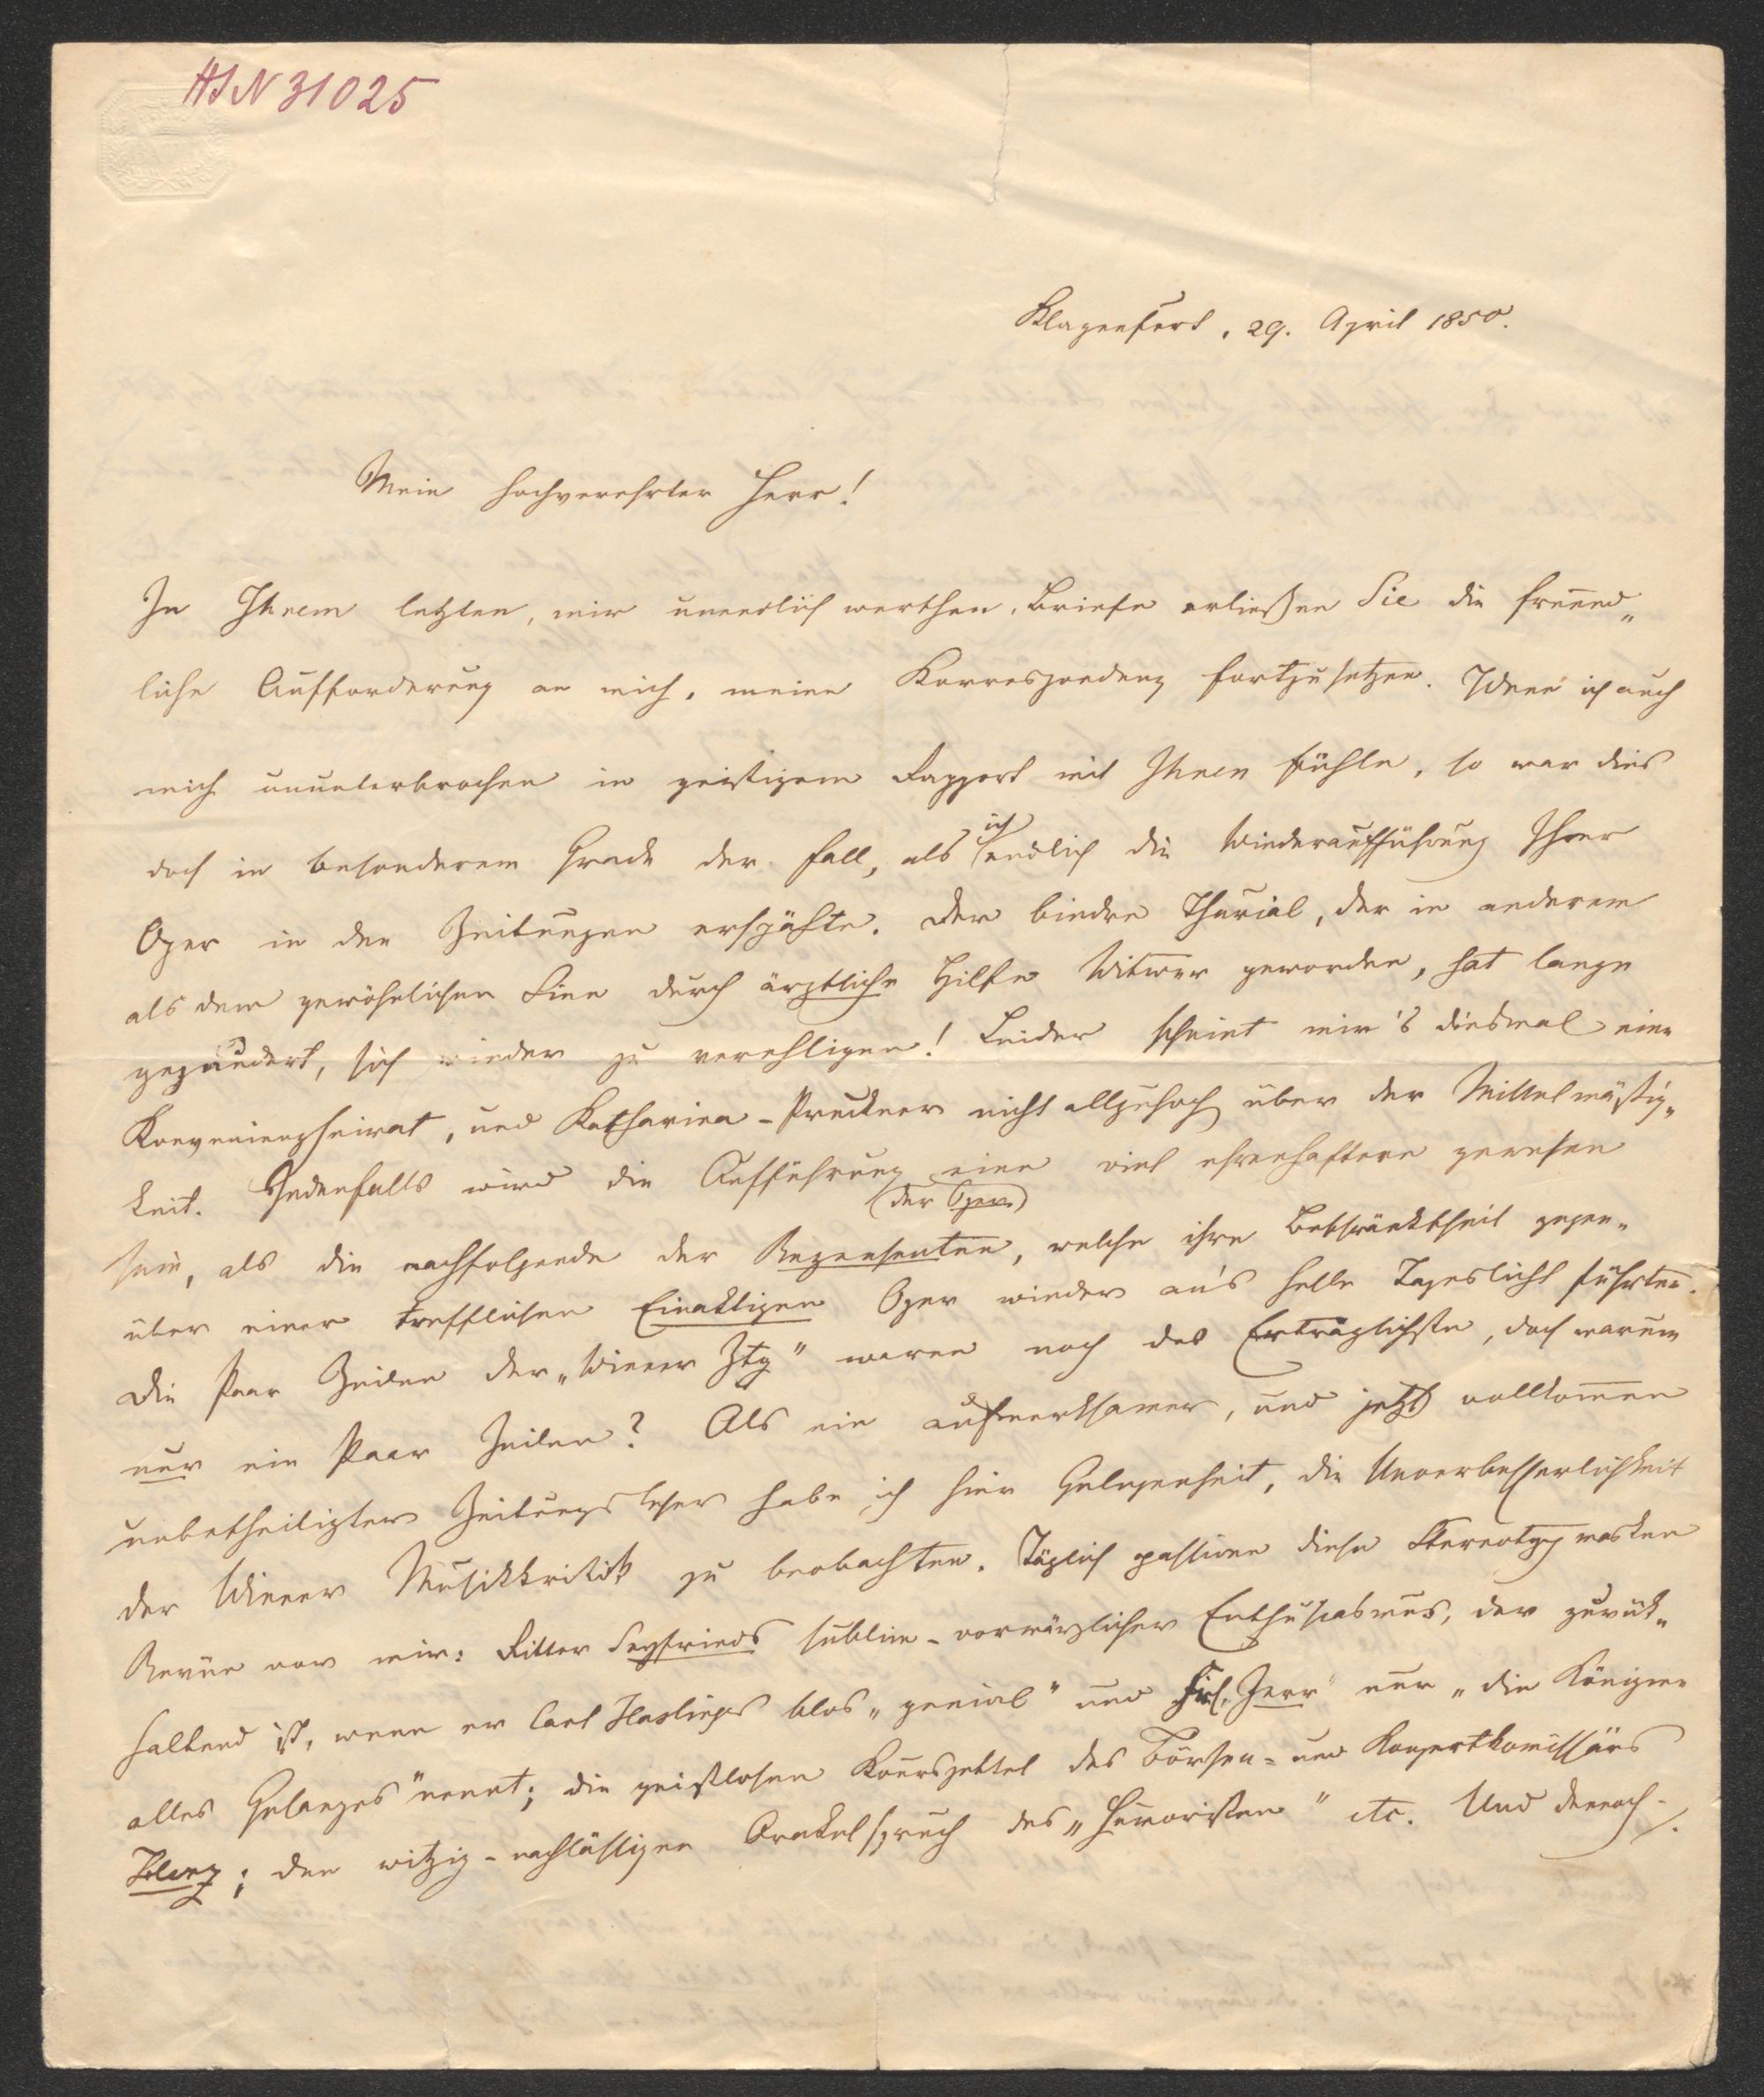 HIN 31025
Klagenfurt, 29. April 1850.
Mein hochverehrter Herr!
In Ihrem letzten, mir unendlich werthen, Briefe erließen Sie die freund„
liche Aufforderung an mich, meine Korrespondenz fortzusetzen. Wenn ich auch
mich ununterbrochen in geistigem Rapport mit Ihnen fühle, so war dies
doch in besonderem Grade der Fall, als ich endlich die Wiederaufführung Ihrer
Oper in den Zeitungen erspähte. Der biedre Thurial, der in anderem
als dem gewöhnlichen Sinn durch ärztliche Hilfe Witwer geworden, hat lange
gezaudert, sich wieder zu verehligen! Leider scheint mir's diesmal eine
Konvenienzheirat, und Katharina-Pruckner nicht allzuhoch über der Mittelmäßig„
keit. Jedenfalls wird die Aufführung (der Oper) eine viel ehrenhaftere gewesen
sein, als die nachfolgende der Rezensenten, welche ihre Beschränktheit gegen„
über einer trefflichen Einaktigen Oper wieder an's helle Tageslicht führten.
Die Paar Zeilen der „Wiener Ztg" waren noch das Erträglichste, doch warum
nur ein Paar Zeilen? Als ein aufmerksamer, und jetzt vollkommen
unbetheiligter Zeitungsleser habe ich hier Gelegenheit, die Unverbesserlichkeit
der Wiener Musikkritik zu beobachten. Täglich passiren diese Stereotypmasken
Revüe vor mir: Ritter Seyfrieds sublim-vormärzlicher Enthusiasmus, der zurück„
haltend ist, wenn er Carl Haslinger blos „genial" und Frl. Zerr nur „die Königin
alles Gesanges" nennt; die geistlosen Kourszettel des Börsen- und Konzertkomissärs
Klerz; den witzig-nachlässigen Orakelspruch des „Humoristen" etc. Und dennoch -